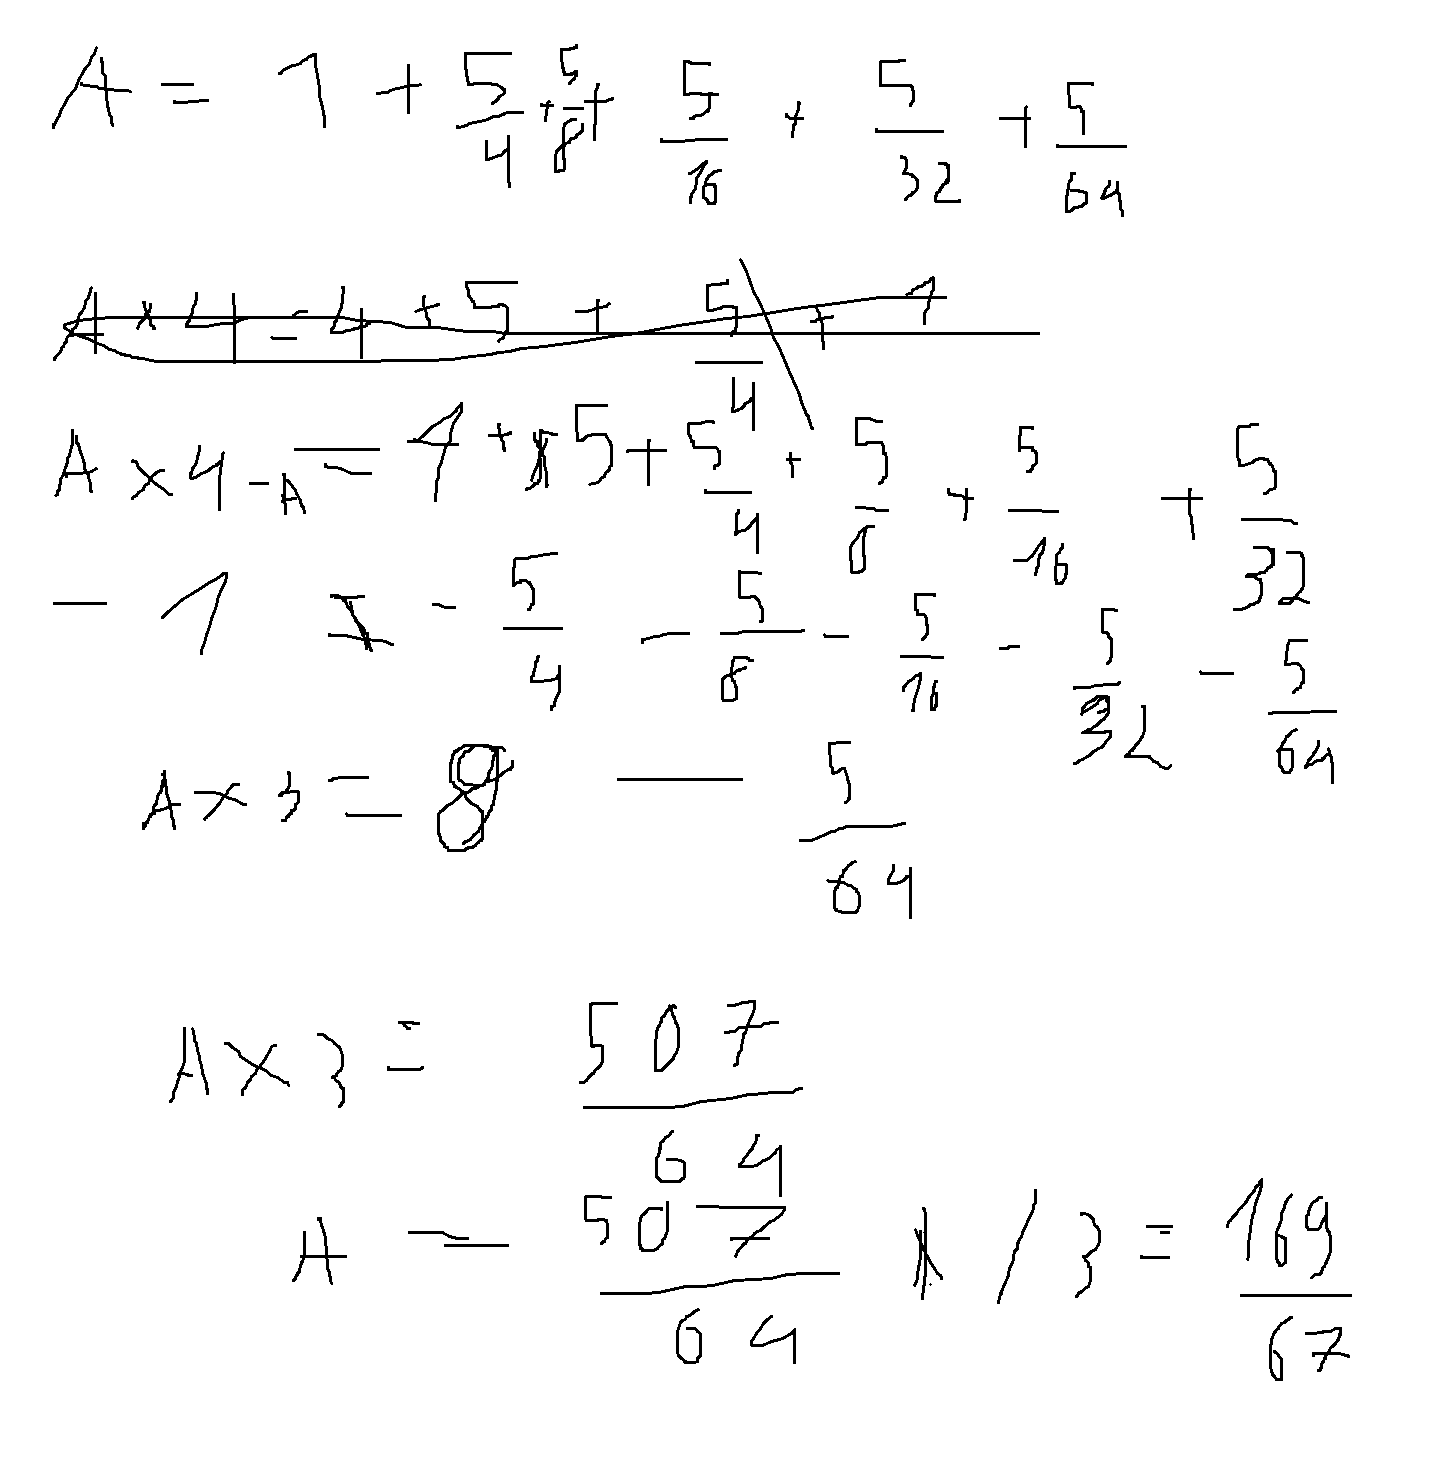 A = 1 + 5/4 + 5/8 + 5/16 + 5/32 + 5/64
A × 4 = 4 + 5 + 5/4 + 1
A × 4 - A = 4 + 5 + 5/4 + 5/8 + 5/16 + 5/32
- 1 - 5/4 - 5/8 - 5/16 - 5/32 - 5/64
A × 3 = 8 - 5/64
A × 3 = 507/64
A = 507/64 / 3 = 169/67